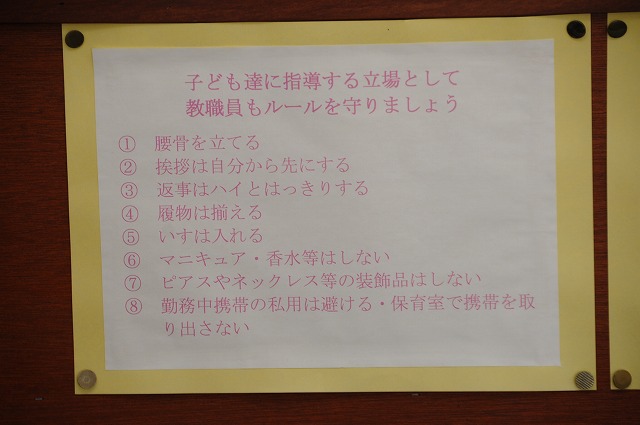 子ども達に指導する立場として
教職員もルールを守りましょう
① 腰骨を立てる
② 挨拶は自分から先にする
③ 返事はハイとはっきりする
④ 履物は揃える
⑤ いすは入れる
⑥ マニキュア・香水等はしない
⑦ ピアスやネックレス等の装飾品はしない
⑧ 勤務中携帯の私用は避ける・保育室で携帯を取
り出さない